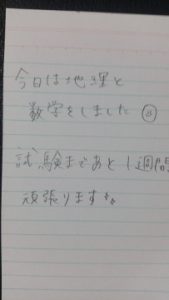 今日は地理と
数学をしました
試験まであと1週間
頑張りますね